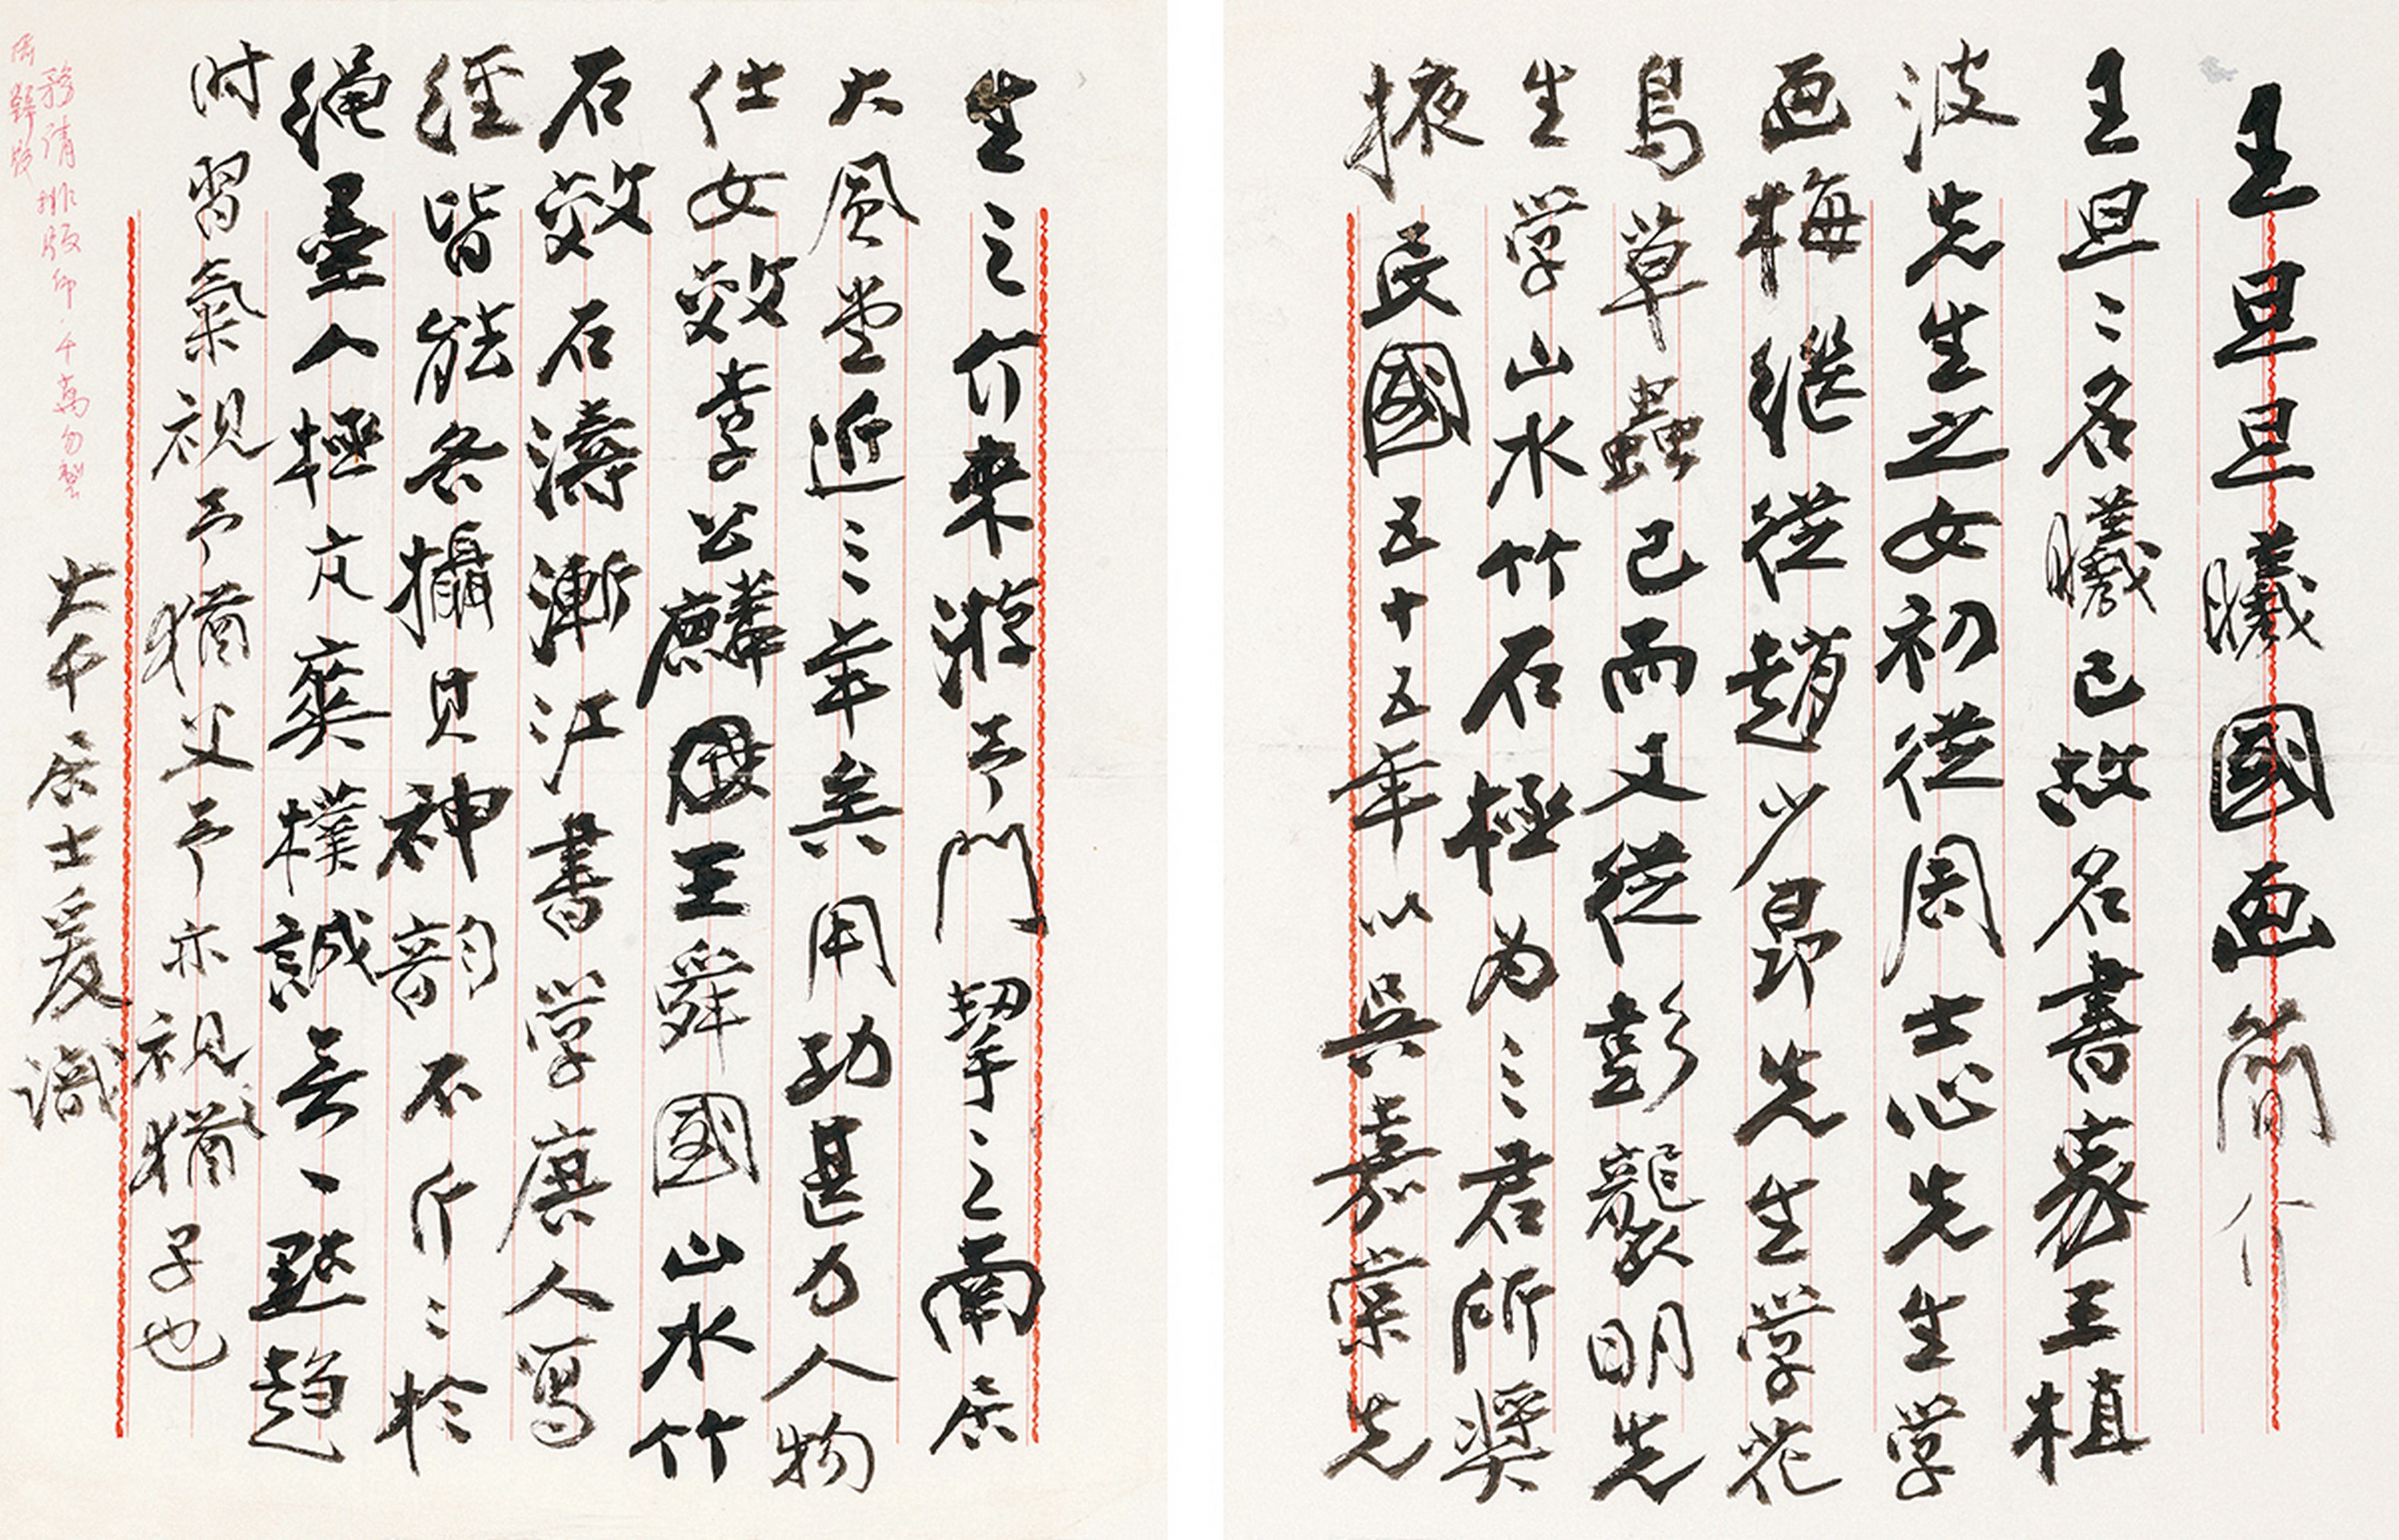 王旦旦曦國画簡介
王旦旦名曦已故名書家王植
波先生之女初從周士心先生学
画梅继從趙少昂先生学花
鳥草蟲已而又從彭襲明先
生学山水竹石極为三君所奨
掖民國五十五年以吳嘉棠先
生之介来游予門挈之南居
大風堂近三年矣用功甚力人物
仕女效李公麟王舜國山水竹
石效石濤漸江書学唐人寫
經皆能各攝其神韵不斤斤於
繩墨人極亢爽樸誠無一點趋
时習氣視予猶父予亦視猶子也
大千居士爰識
務清排版印千萬勿製
鋅版